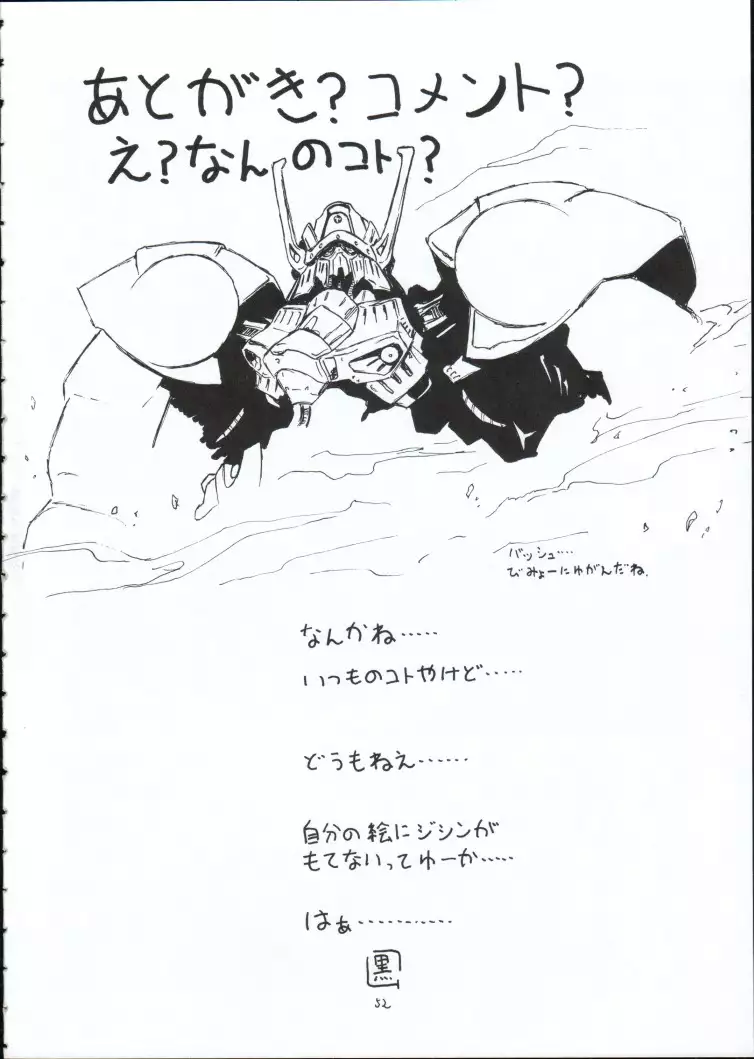 あとがき？コメント？
え？なんのコト？
バッシュ‥‥
びみょーにゆがんだね.
なんかね‥‥‥
いつものコトやけど‥‥‥
どうもねえ‥‥‥‥
自分の絵にジシンが
もてないってゆーか‥‥‥
はぁ‥‥‥‥‥‥‥
黒
52